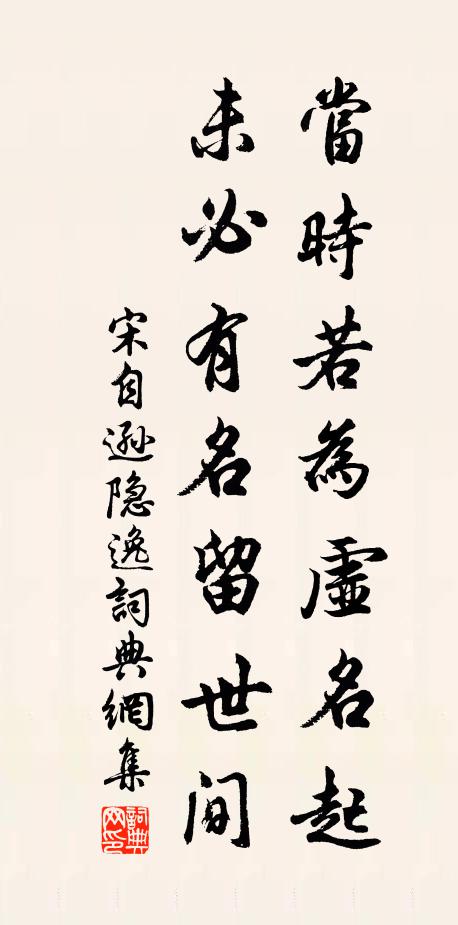 當時若為虛名起
未必有名留世间
宋自遜隐逸詞典網集
詞典网印